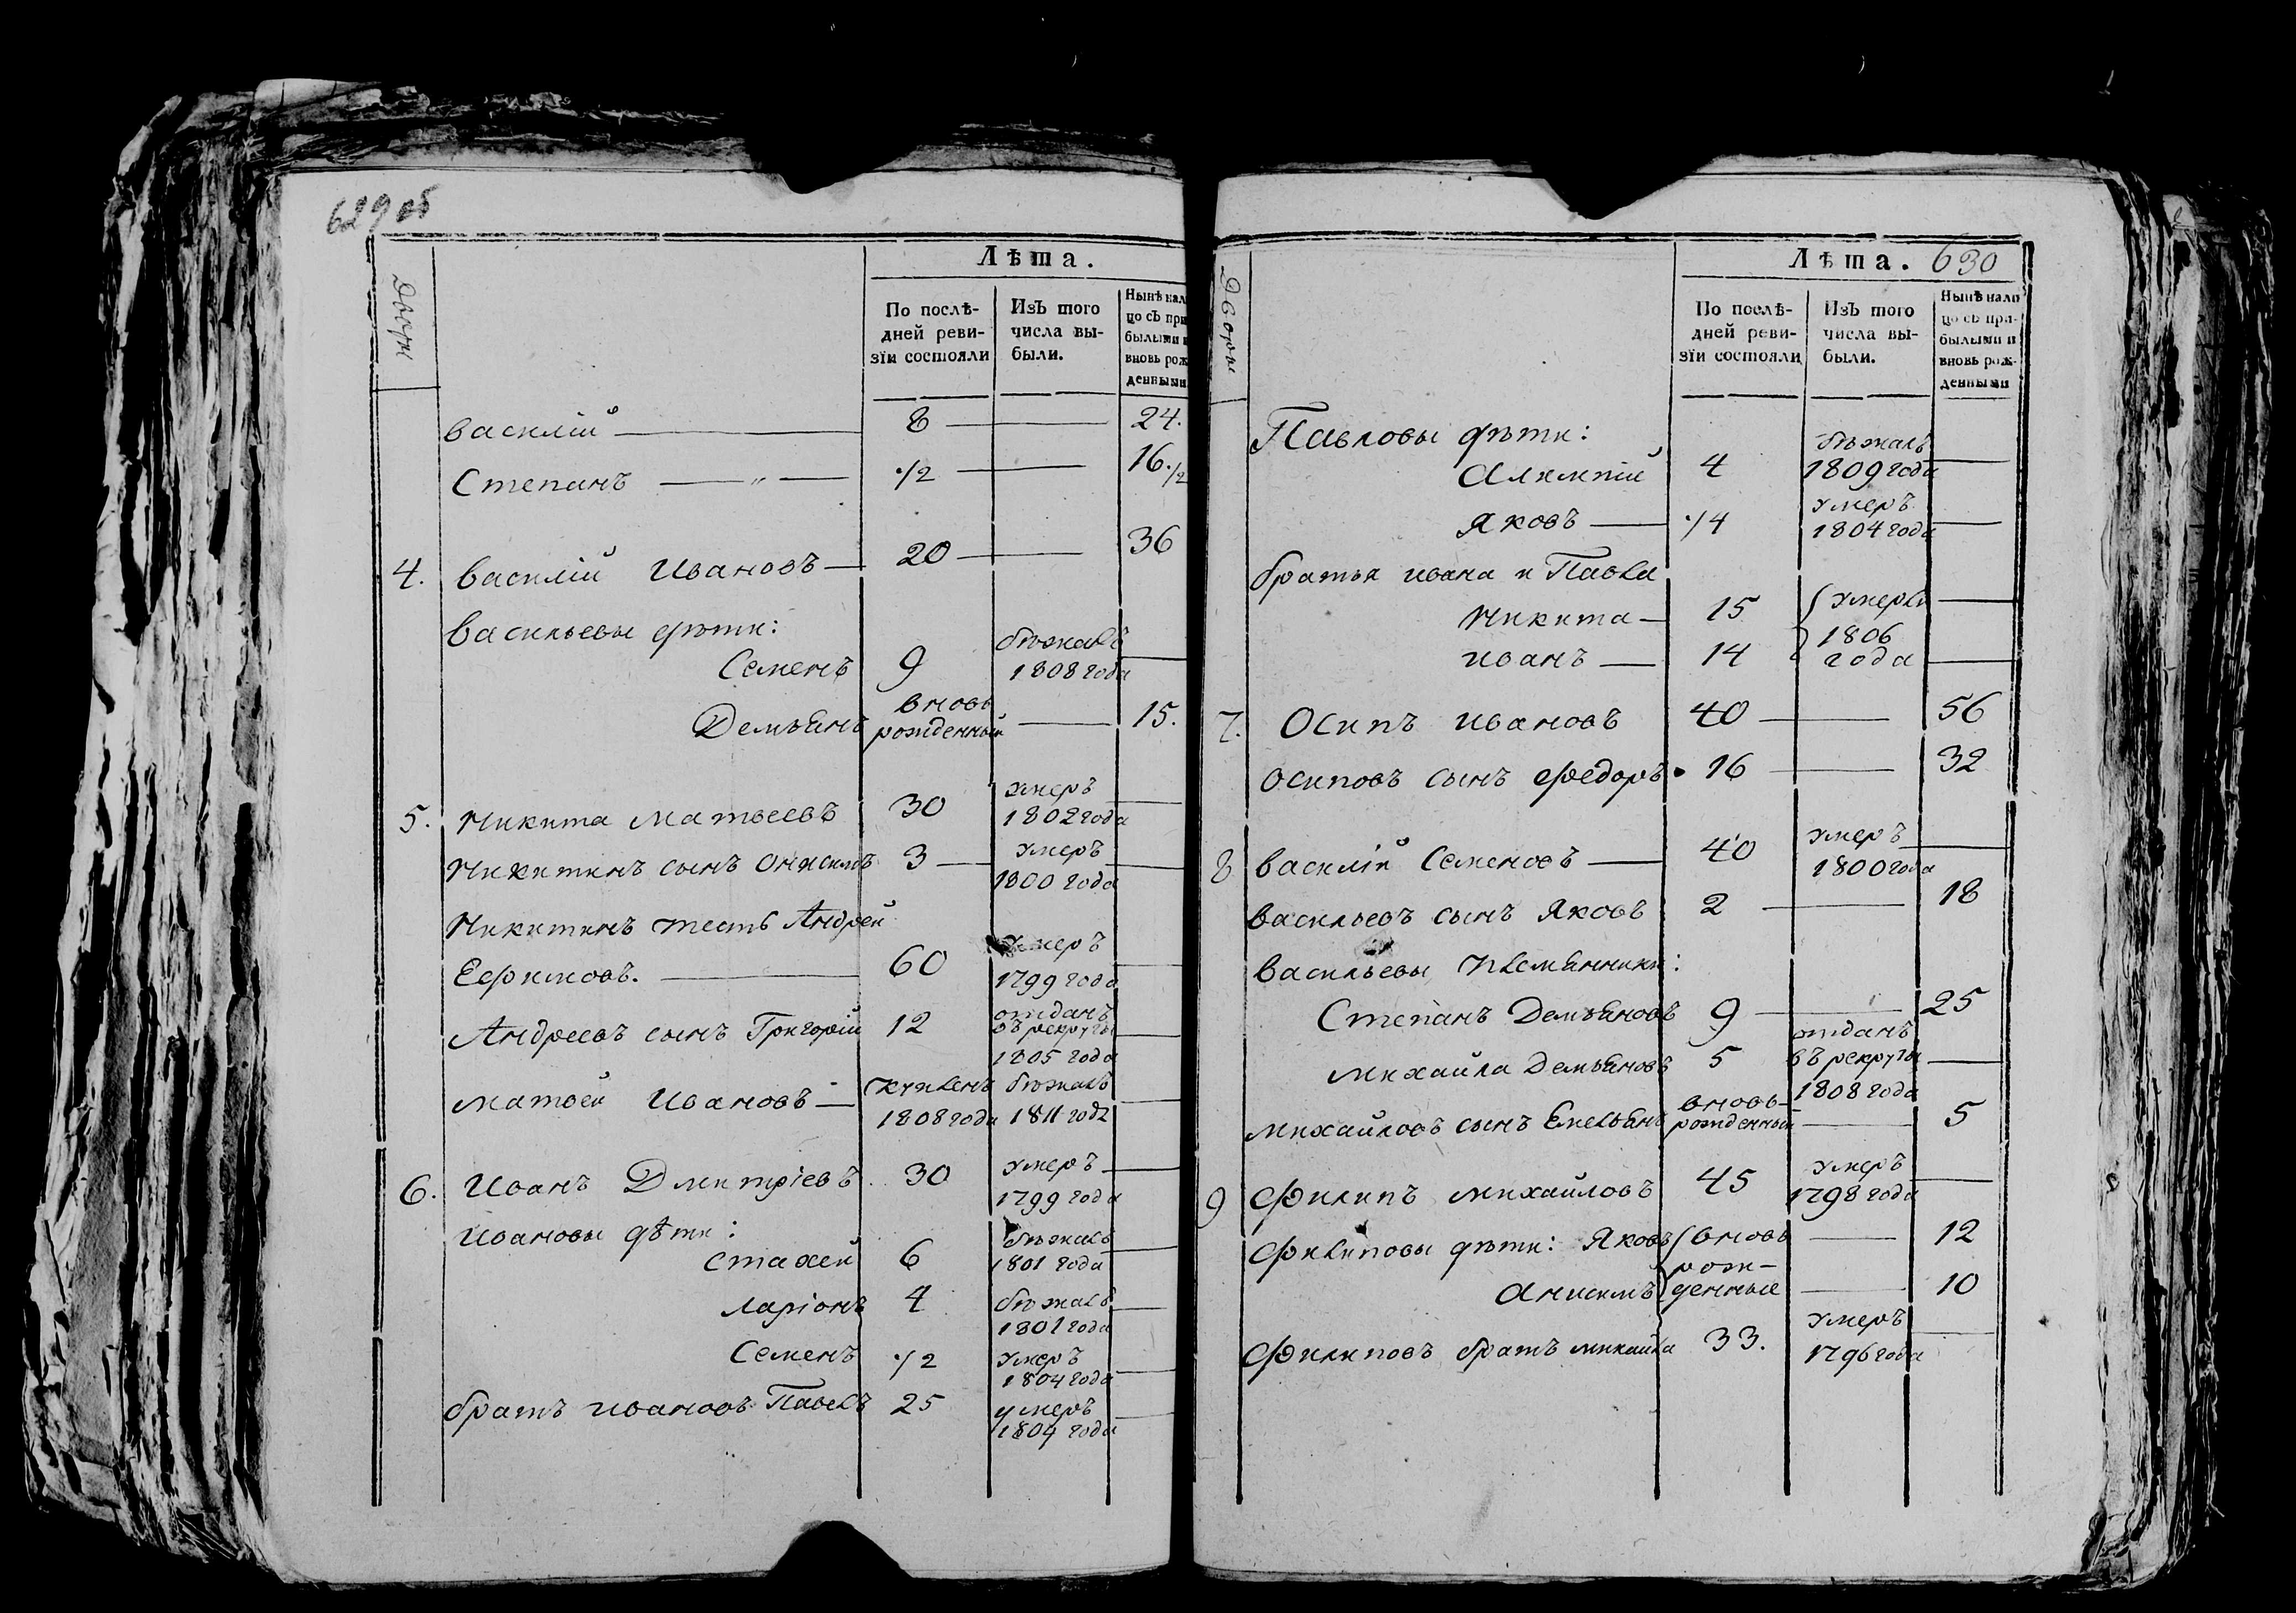 629 об
Дворы
Лѣта.
По послѣ-
дней реви-
зїи состояли
Изъ того
числа вы-
были.
Нынѣ нали
цо съ при
былыми и
вновь рож
денными
Василій — 8 — 24.
Степанъ — " — ·/2 — 16·/2
4. Василій Ивановъ — 20 — 36
Васильевы дѣти:
Семенъ 9 бѣжалъ
1808 года
Демьянъ вновь
рожденный — 15.
5. Никита Матвеевъ 30 умеръ
1802 года
Никитинъ сынъ Онисимъ 3 — умеръ
1800 года
Никитинъ тесть Андрей
Ефимовъ. — 60 умеръ
1799 года
Андреевъ сынъ Григорій 12 отданъ
въ рекруты
1805 года
Матвей Ивановъ — купленъ бѣжалъ
1808 года 1811 года
6. Иванъ Дмитріевъ. 30 умеръ
1799 года
Ивановы дѣти:
Стахей 6 бѣжалъ
1801 года
Ларіонъ 4 бѣжалъ
1801 года
Семенъ ·/2 умеръ
1804 года
братъ Ивановъ Павелъ 25 умеръ
1804 года
Дворы
Лѣта. 630
По послѣ-
дней реви-
зїи состояли
Изъ того
числа вы-
были.
Нынѣ нали
цо съ при-
былыми и
вновь рож-
денными
Павловы дѣти:
Алимпій 4 бѣжалъ
1809 года
Яковъ — ·/4 умеръ
1804 года
братья Ивана и Павла
Никита — 15 умерли
Иванъ — 14 1806
года
7. Осипъ Ивановъ 40 — 56
Осиповъ сынъ Федоръ 16 — 32
8 Василій Семеновъ — 40 умеръ
1800 года
Васильевъ сынъ Яковъ 2 — 18
Васильевы племянники:
Степанъ Демьяновъ 9 — 25
Михайла Демьяновъ 5 отданъ
въ рекруты
1808 года
Михайловъ сынъ Емельянъ вновь-
рожденный — 5
9 Филипъ Михайловъ 45 умеръ
1798 года
Филиповы дѣти: Яковъ вновь — 12
рож-
Анисимъ денные — 10
Филиповъ братъ Михайла 33. умеръ
1796 года